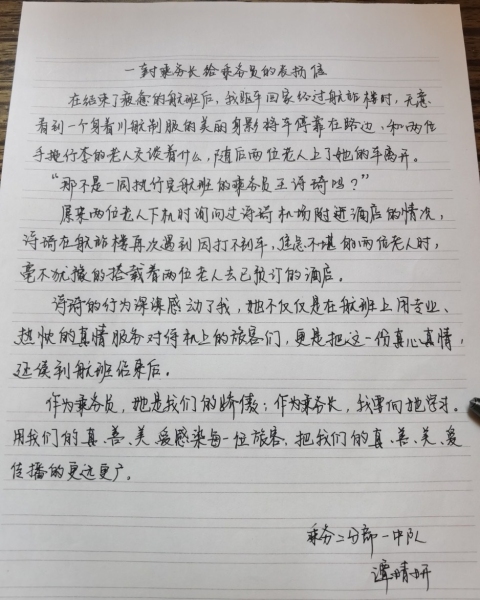 一封乘务长给乘务员的表扬信
在结束了疲惫的航班后，我驱车回家经过航站楼时，无意
看到一个身着川航制服的美丽身影将车停靠在路边，和两位
手拖行李的老人交谈着什么，随后两位老人上了她的车离开。
“那不是一同执行完航班的乘务员王诗琦吗？”
原来两位老人下机时询问过诗琦机场附近酒店的情况，
诗琦在航站楼再次遇到因打不到车，焦急不堪的两位老人时，
毫不犹豫的搭载着两位老人去已预订的酒店。
诗琦的行为深深感动了我，她不仅仅是在航班上用专业、
热忱的真情服务对待机上的旅客们，更是把这一份真心真情，
延续到航班结束后。
作为乘务员，她是我们的骄傲；作为乘务长，我要向她学习。
用我们的真、善、美、爱感染每一位旅客，把我们的真、善、美、爱
传播的更远更广。
乘务二分部一中队
谭晴妍